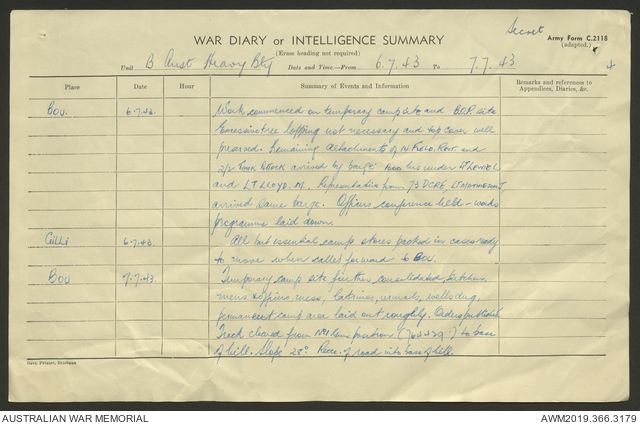 Secret
WAR DIARY or INTELLIGENCE SUMMARY
Army Form C.2118
(Erase heading not required)
(adapted.)
Unit B Aust Heavy Bty Date and Time—From 6.7.43 To 7.7.43
Place Date Hour Summary of Events and Information Remarks and references to Appendices, Diaries, &c.
Bou. 6.7.43. Work commenced on temporary camp site and B.O.P. site
Excessive tree lopping not necessary and top cover well
preserved. Remaining attachments of 14 Field Regt. and
2/2 arrived by barge under Lt
and Lt Lloyd. M. Representative from 73 DCRE Lt
arrived same barge. Officers conference held - works
programme laid down.
6.7.43. All but essential camp stores packed in cases ready
to move when called forward to Bou.
Bou 7.7.43. Temporary camp site further consolidated, kitchen,
mens & officers mess, latrines, urinals, wells dug,
permanent camp area laid out roughly. Orders published
Track cleared from No1 Gun position to base
of hill. Slope 25° Recce. of road into base of hill.
Govt. Printer, Brisbane
AUSTRALIAN WAR MEMORIAL AWM2019.366.3179